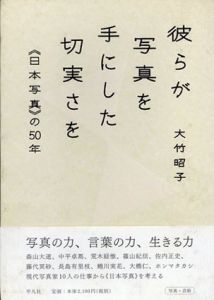 彼らが
写真を
手にした
切実さを
《日本写真》の50年
大竹昭子
写真の力、言葉の力、生きる力
森山大道、中平卓馬、荒木経惟、篠山紀信、佐内正史、
藤代冥砂、長島有里枝、蜷川実花、大橋仁、ホンマタカシ
現代写真家10人の仕事から《日本写真》を考える
平凡社
定価:本体2,200円(税別)
写真・芸術